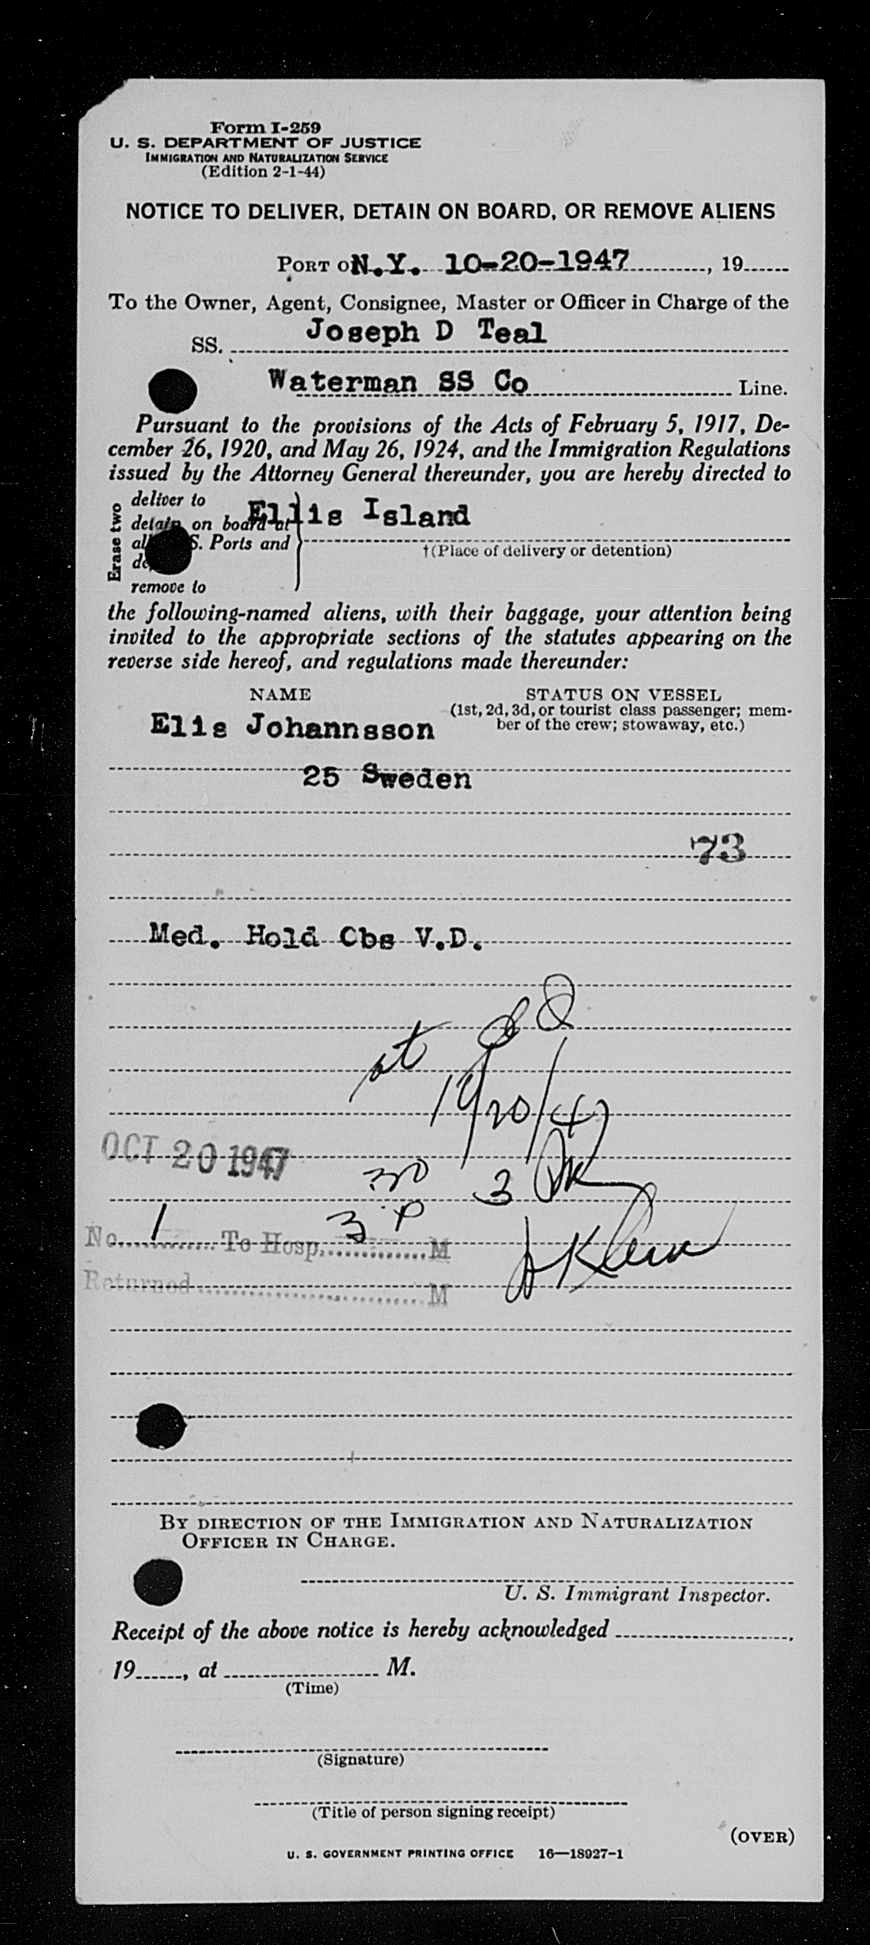 Form I-259
U. S. DEPARTMENT OF JUSTICE
IMMIGRATION AND NATURALIZATION SERVICE
(Edition 2-1-44)
NOTICE TO DELIVER, DETAIN ON BOARD, OR REMOVE ALIENS
PORT O N.Y. 10-20-1947, 19
To the Owner, Agent, Consignee, Master or Officer in Charge of the
SS. Joseph D Teal
Waterman SS Co Line.
Pursuant to the provisions of the Acts of February 5, 1917, De-
cember 26, 1920, and May 26, 1924, and the Immigration Regulations
issued by the Attorney General thereunder, you are hereby directed to
Erase two
deliver to
detain on board at
Ellis Island
S. Ports and
†(Place of delivery or detention)
remove to
the following-named aliens, with their baggage, your attention being
invited to the appropriate sections of the statutes appearing on the
reverse side hereof, and regulations made thereunder:
NAME STATUS ON VESSEL
(1st, 2d, 3d, or tourist class passenger; mem-
ber of the crew; stowaway, etc.)
Elis Johannsson
25 Sweden
73
Med. Hold Obs V.D.
at
10/20/47
OCT 20 1947
30 3 PM
No. 1 To Hosp. 3 P M
Returned M
BY DIRECTION OF THE IMMIGRATION AND NATURALIZATION
OFFICER IN CHARGE.
U. S. Immigrant Inspector.
Receipt of the above notice is hereby acknowledged ,
19, at M.
(Time)
(Signature)
(Title of person signing receipt)
(OVER)
U. S. GOVERNMENT PRINTING OFFICE 16—18927-1